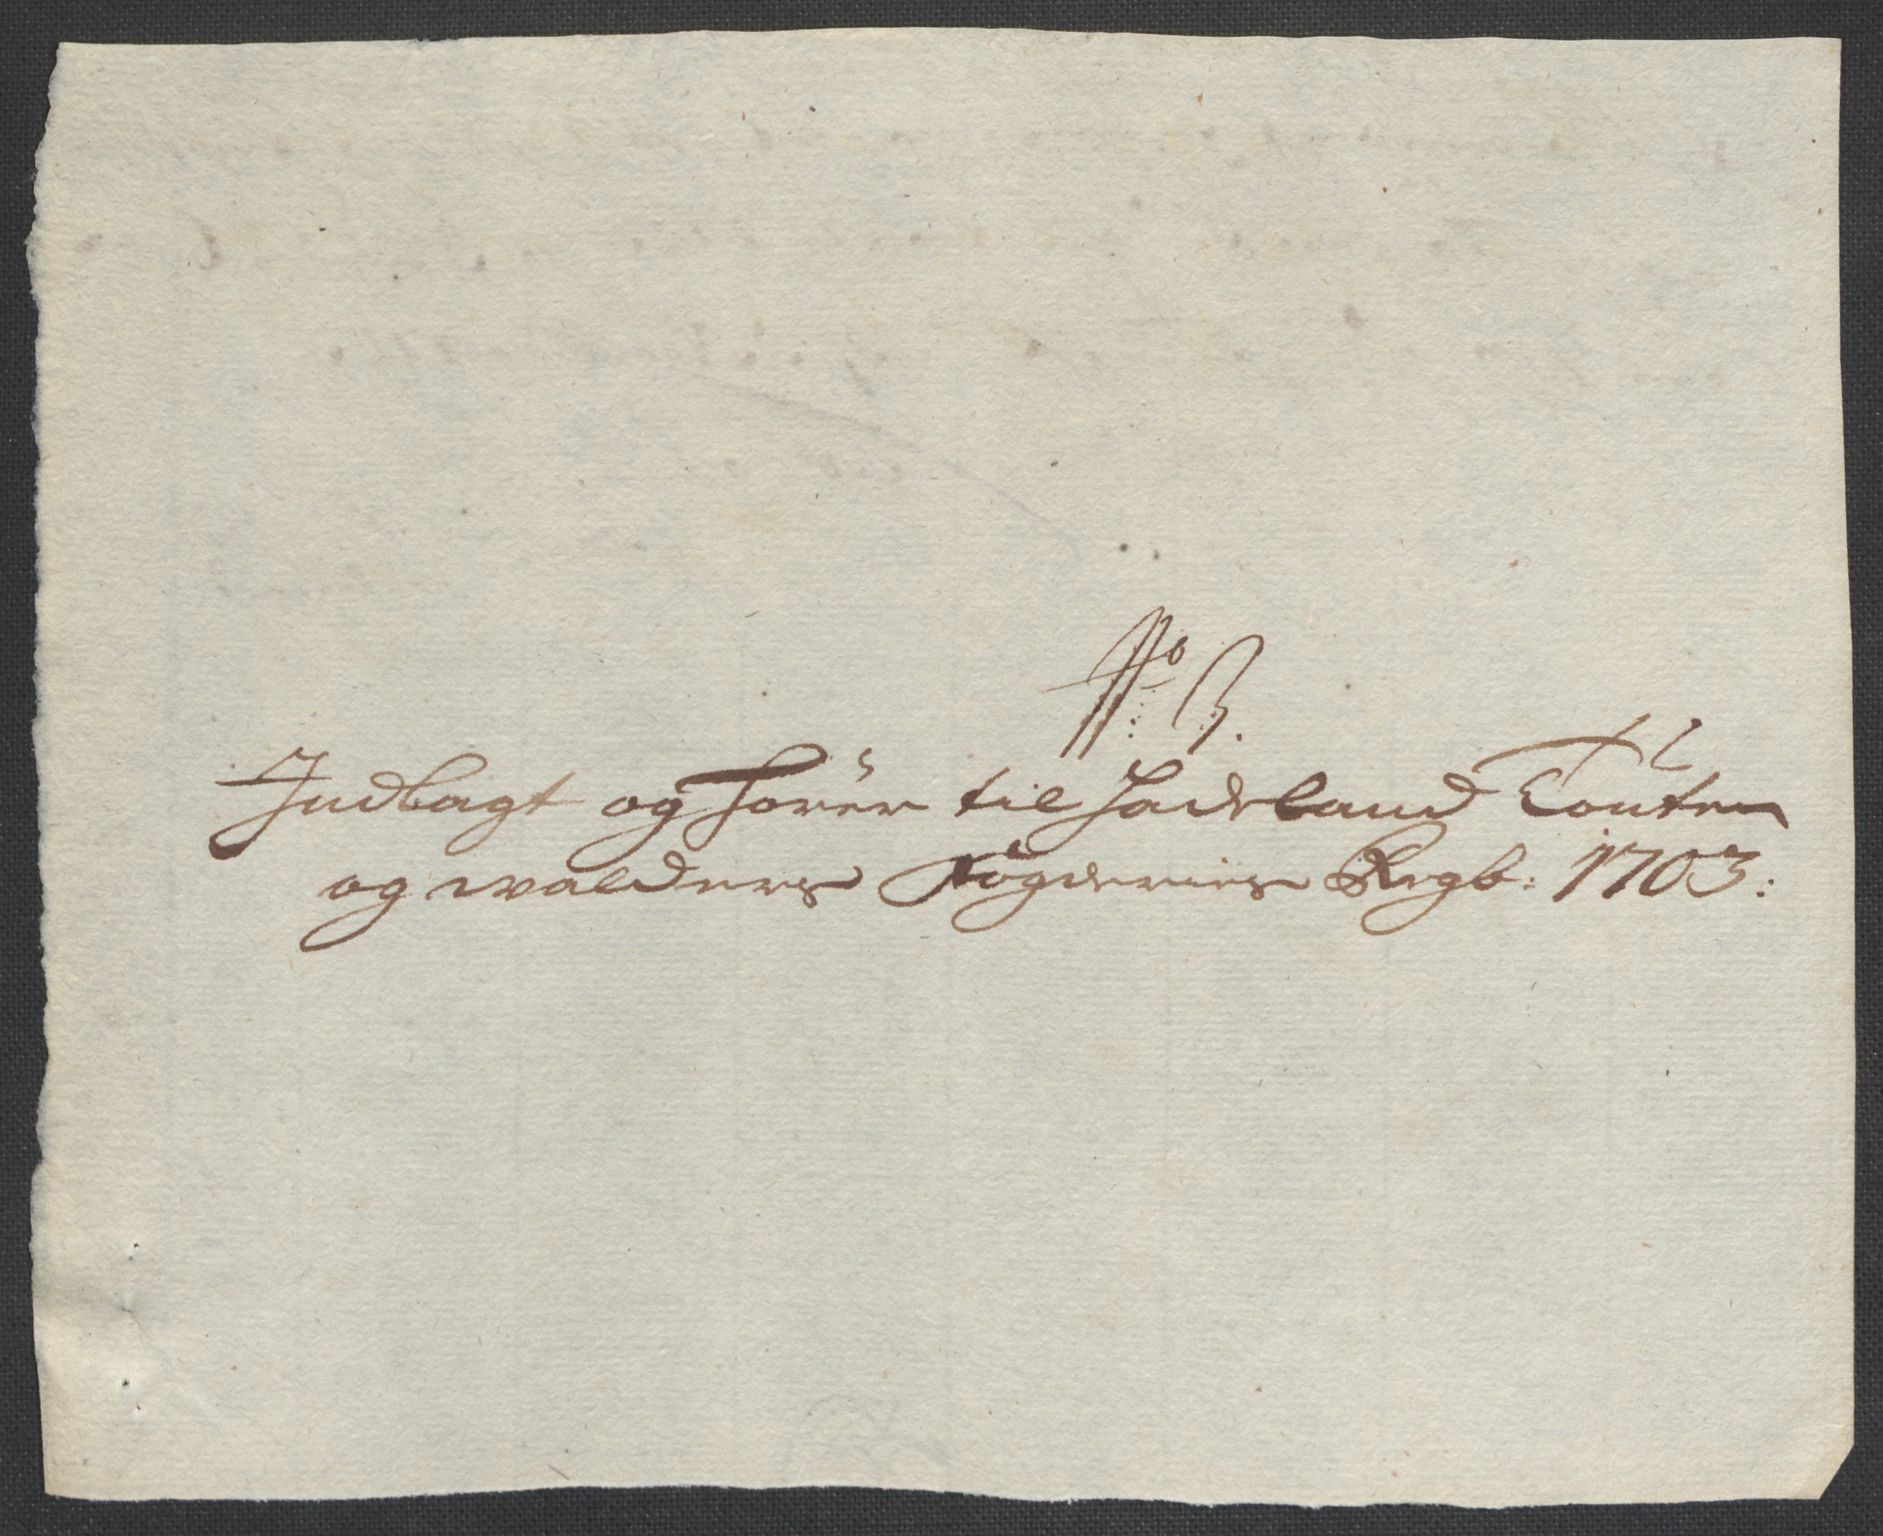 No 3.
Indlagt og hører til Hadeland Touten
og walders Fögderies Regb: 1703: